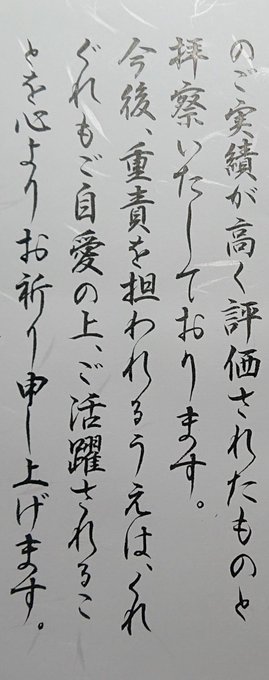 のご実績が高く評価されたものと
拝察いたしております。
今後、重責を担われるうえは、くれ
ぐれもご自愛の上、ご活躍されるこ
とを心よりお祈り申し上げます。